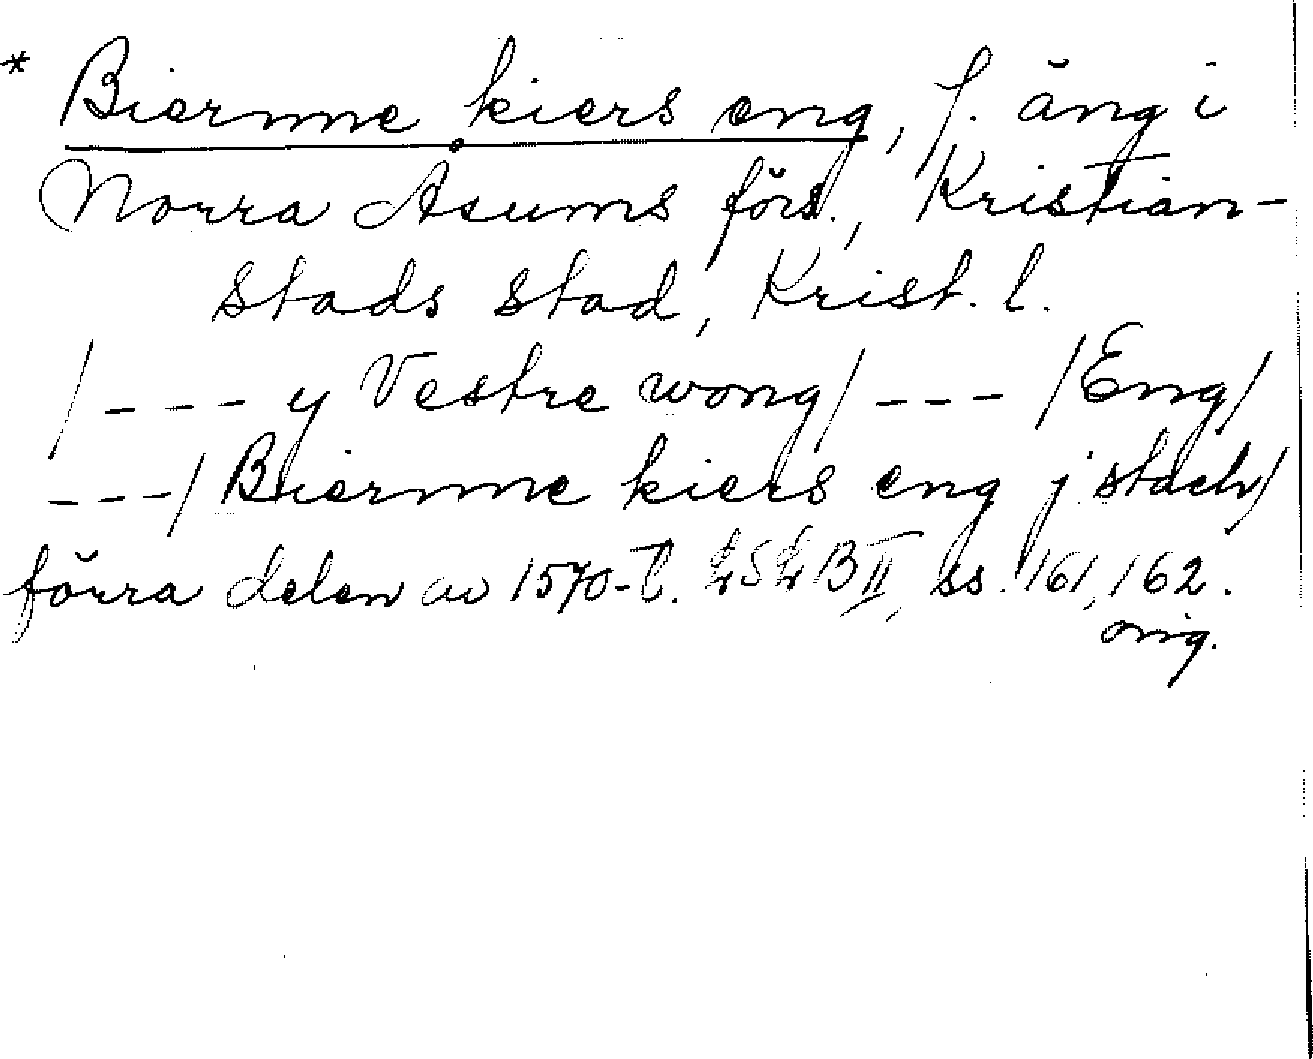 * Biernne kiers eng, f. äng i
Norra Åsums förs., Kristian-
stads stad, Krist. l.
/--- y Vestre wong/ --- /Eng/
---/ Biernne kiers eng j stach/
förra delen av 1570-t. LSLB II, ss. 161, 162.
orig.